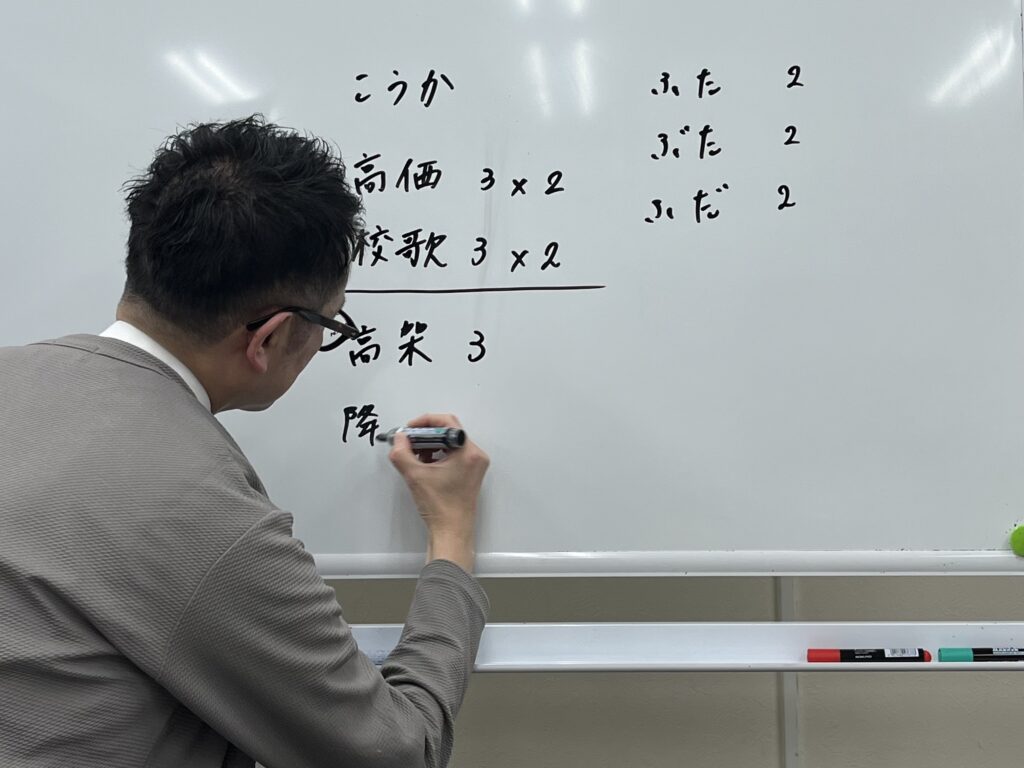 こうか
高価 3×2
校歌 3×2
高架 3
降
ふた 2
ぶた 2
ふだ 2